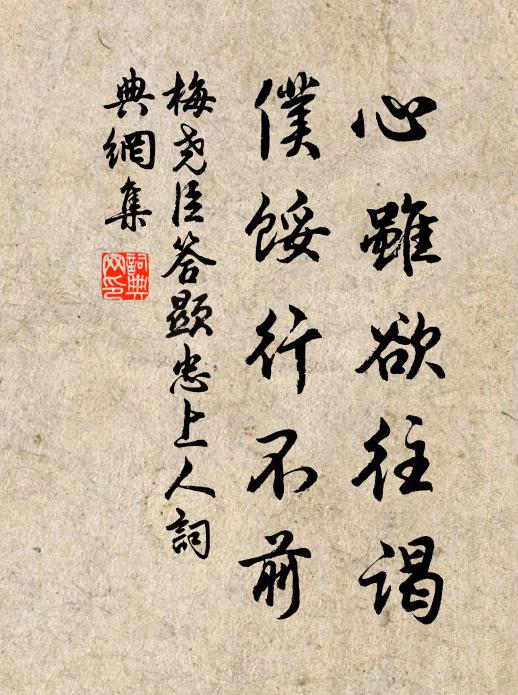 心雖欲往謁
僕餒行不前
梅堯臣答顯忠上人詞
典網集
詞典
网印